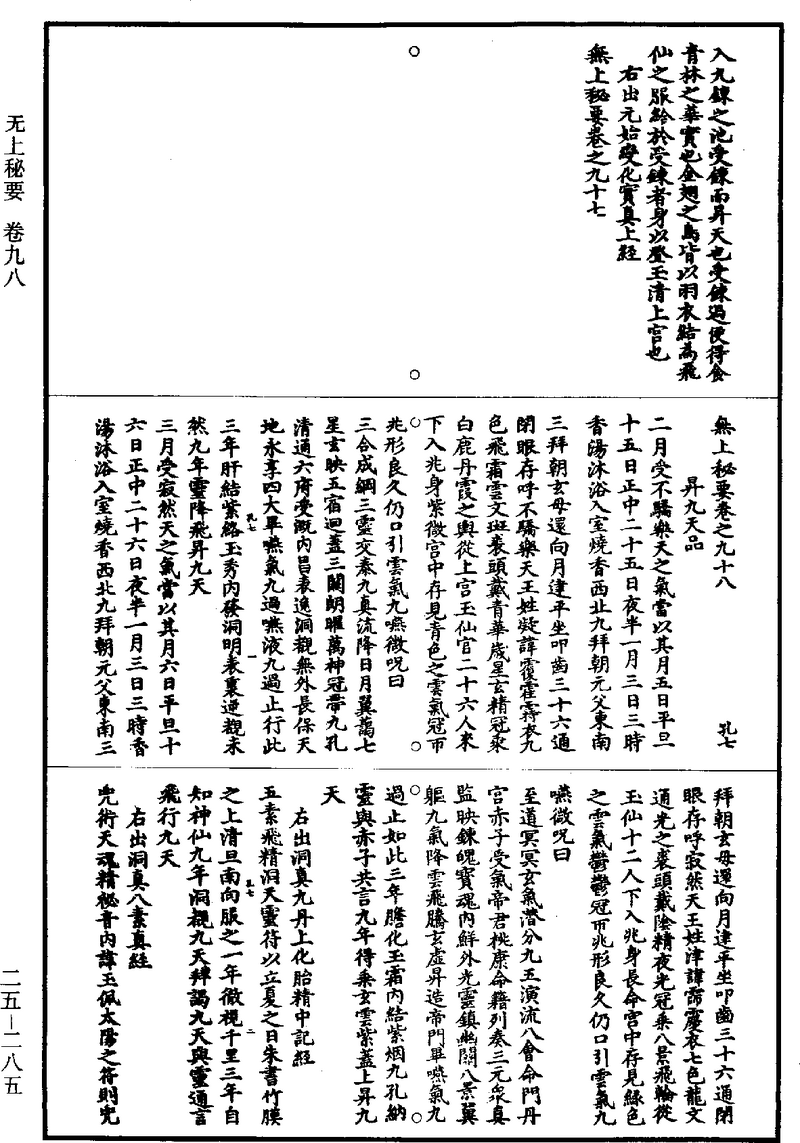 入九鍊之池受鍊而昇天也受鍊過便得食
青林之華實也金翅之鳥皆以羽衣結為飛
仙之服給於受鍊者身以登玉清上宮也
右出元始變化寶真上經
無上秘要卷之九十七
無上秘要卷之九十八
孔七
昇九天品
二月受不驕樂天之氣當以其月五日平旦
十五日正中二十五日夜半一月三日三時
香湯沐浴入室燒香西北九拜朝元父東南
三拜朝玄母還向月建平坐叩齒三十六通
閉眼存呼不驕樂天王姓凝諱覆霍霧衣九
色飛霜雲文斑裘頭戴青華歲星玄精冠乘
白鹿丹霞之輿從上宮玉仙官二十六人來
下入兆身紫微宮中存見青色之雲氣冠帀
兆形良久仍口引雲氣九嚥微呪曰
三合成綱三靈交泰九真流降日月翼藹七
星玄映五宿迴蓋三關朗曜萬神冠帶九孔
清通六府受溉內昌表逸洞觀無外長保天
地永享四大畢嚥氣九過嚥液九過止行此
三年肝結紫絡玉秀內發洞明表裏逆覩未
然九年靈降飛昇九天
三月受寂然天之氣當以其月六日平旦十
六日正中二十六日夜半一月三日三時香
湯沐浴入室燒香西北九拜朝元父東南三
拜朝玄母還向月建平坐叩齒三十六通閉
眼存呼寂然天王姓津諱霈䨴衣七色龍文
通光之裘頭戴陰精夜光冠乘八景飛輪從
玉仙十二人下入兆身長命宮中存見綠色
之雲氣鬱鬱冠帀兆形良久仍口引雲氣九
嚥微呪曰
至道冥冥玄氣潛分九五演流八會命門丹
宮赤子受氣帝君桃康命籍列奏三元衆真
監映鍊魄寶魂內鮮外光靈鎮幽關八景翼
軀九氣降雲飛騰玄虛昇造帝門畢嚥氣九
過止如此三年膽化玉霜內結紫烟九孔納
靈與赤子共言九年待乘玄雲紫蓋上昇九
天
右出洞真九丹上化胎精中記經
五素飛精洞天靈符以立夏之日朱書竹膜
之上清旦南向服之一年徹視千里三年自
知神仙九年洞觀九天拜謁九天與靈通言
飛行九天
右出洞真八素真經
兜術天魂精秘音內諱玉佩太陽之符則兜
无上秘要　卷九八
二五—二八五